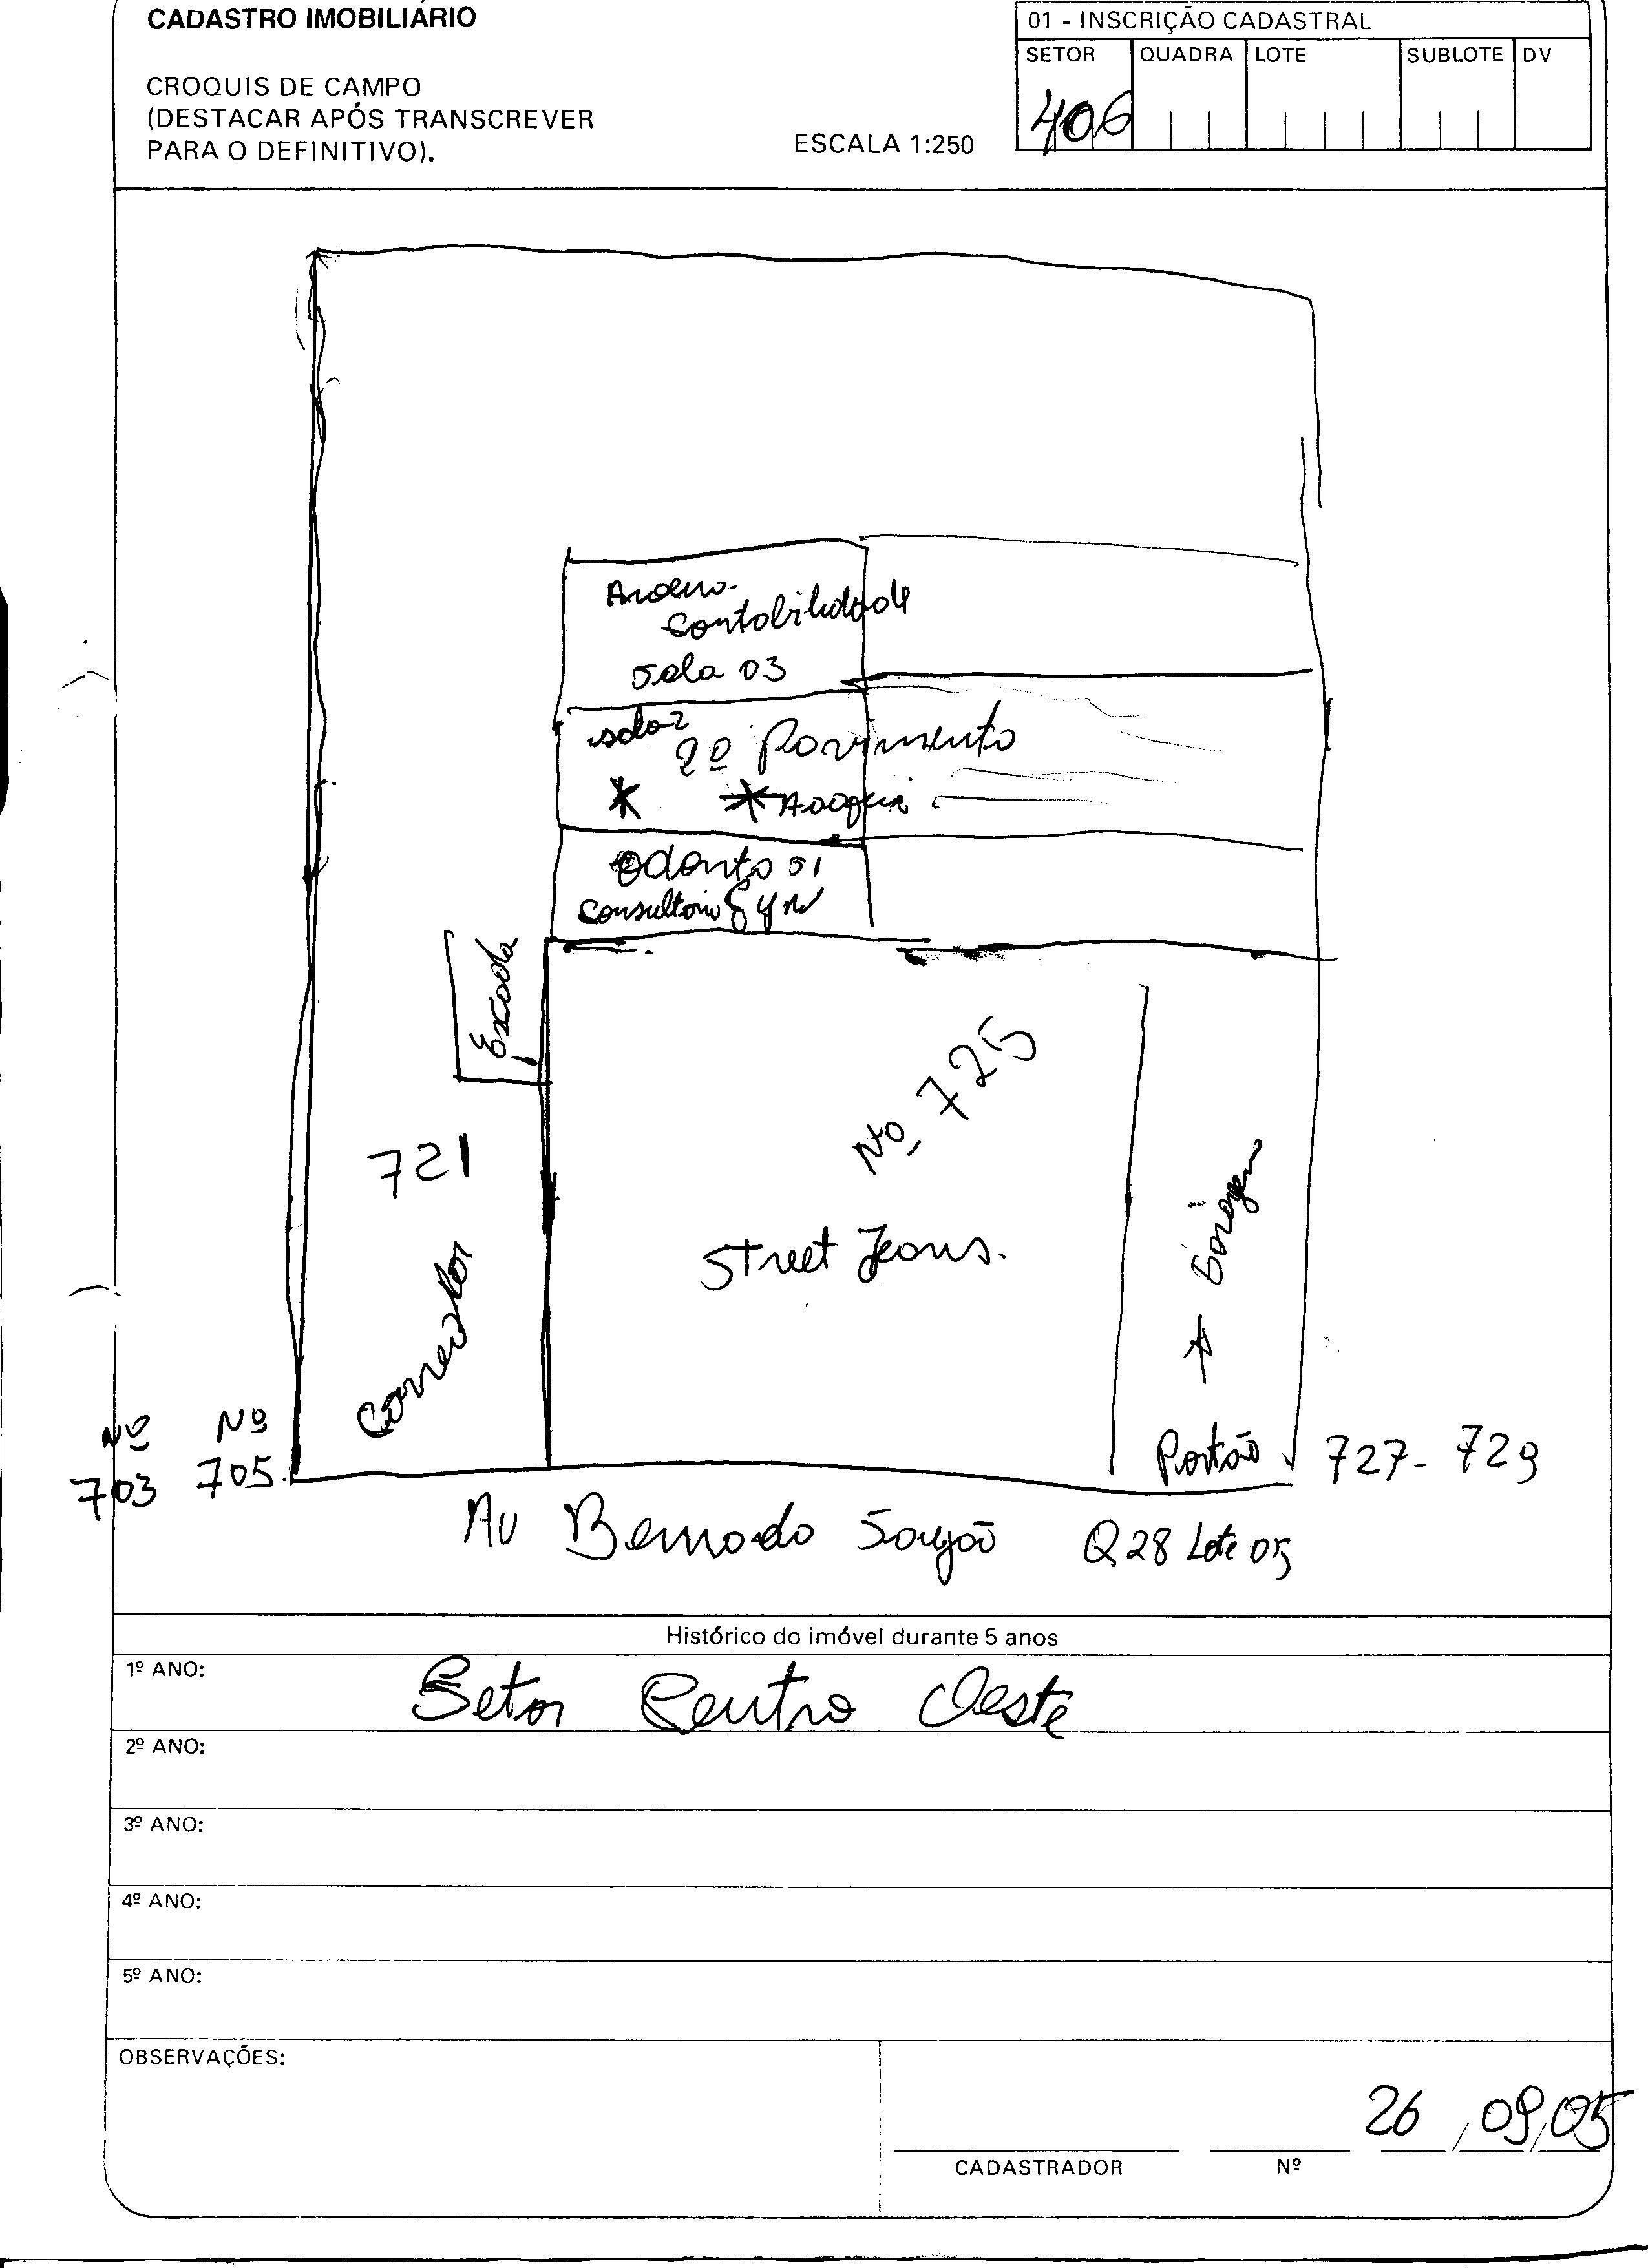 CADASTRO IMOBILIÁRIO
CROQUIS DE CAMPO
(DESTACAR APÓS TRANSCREVER
PARA O DEFINITIVO).
ESCALA 1:250
01 - INSCRIÇÃO CADASTRAL
SETOR QUADRA LOTE SUBLOTE DV
406
Contabilidade
Sala 03
sala 2
2º Pavimento
Odonto 01
Consultorio
Escada
No 725
721
Street Jeans.
Garagem
Corredor
Nº Nº
703 705
Portão 727- 729
AV Bernardo Sayão Q28 Lote 05
Histórico do imóvel durante 5 anos
1º ANO: Setor Centro Oeste
2º ANO:
3º ANO:
4º ANO:
5º ANO:
OBSERVAÇÕES:
26 / 09 / 05
CADASTRADOR Nº